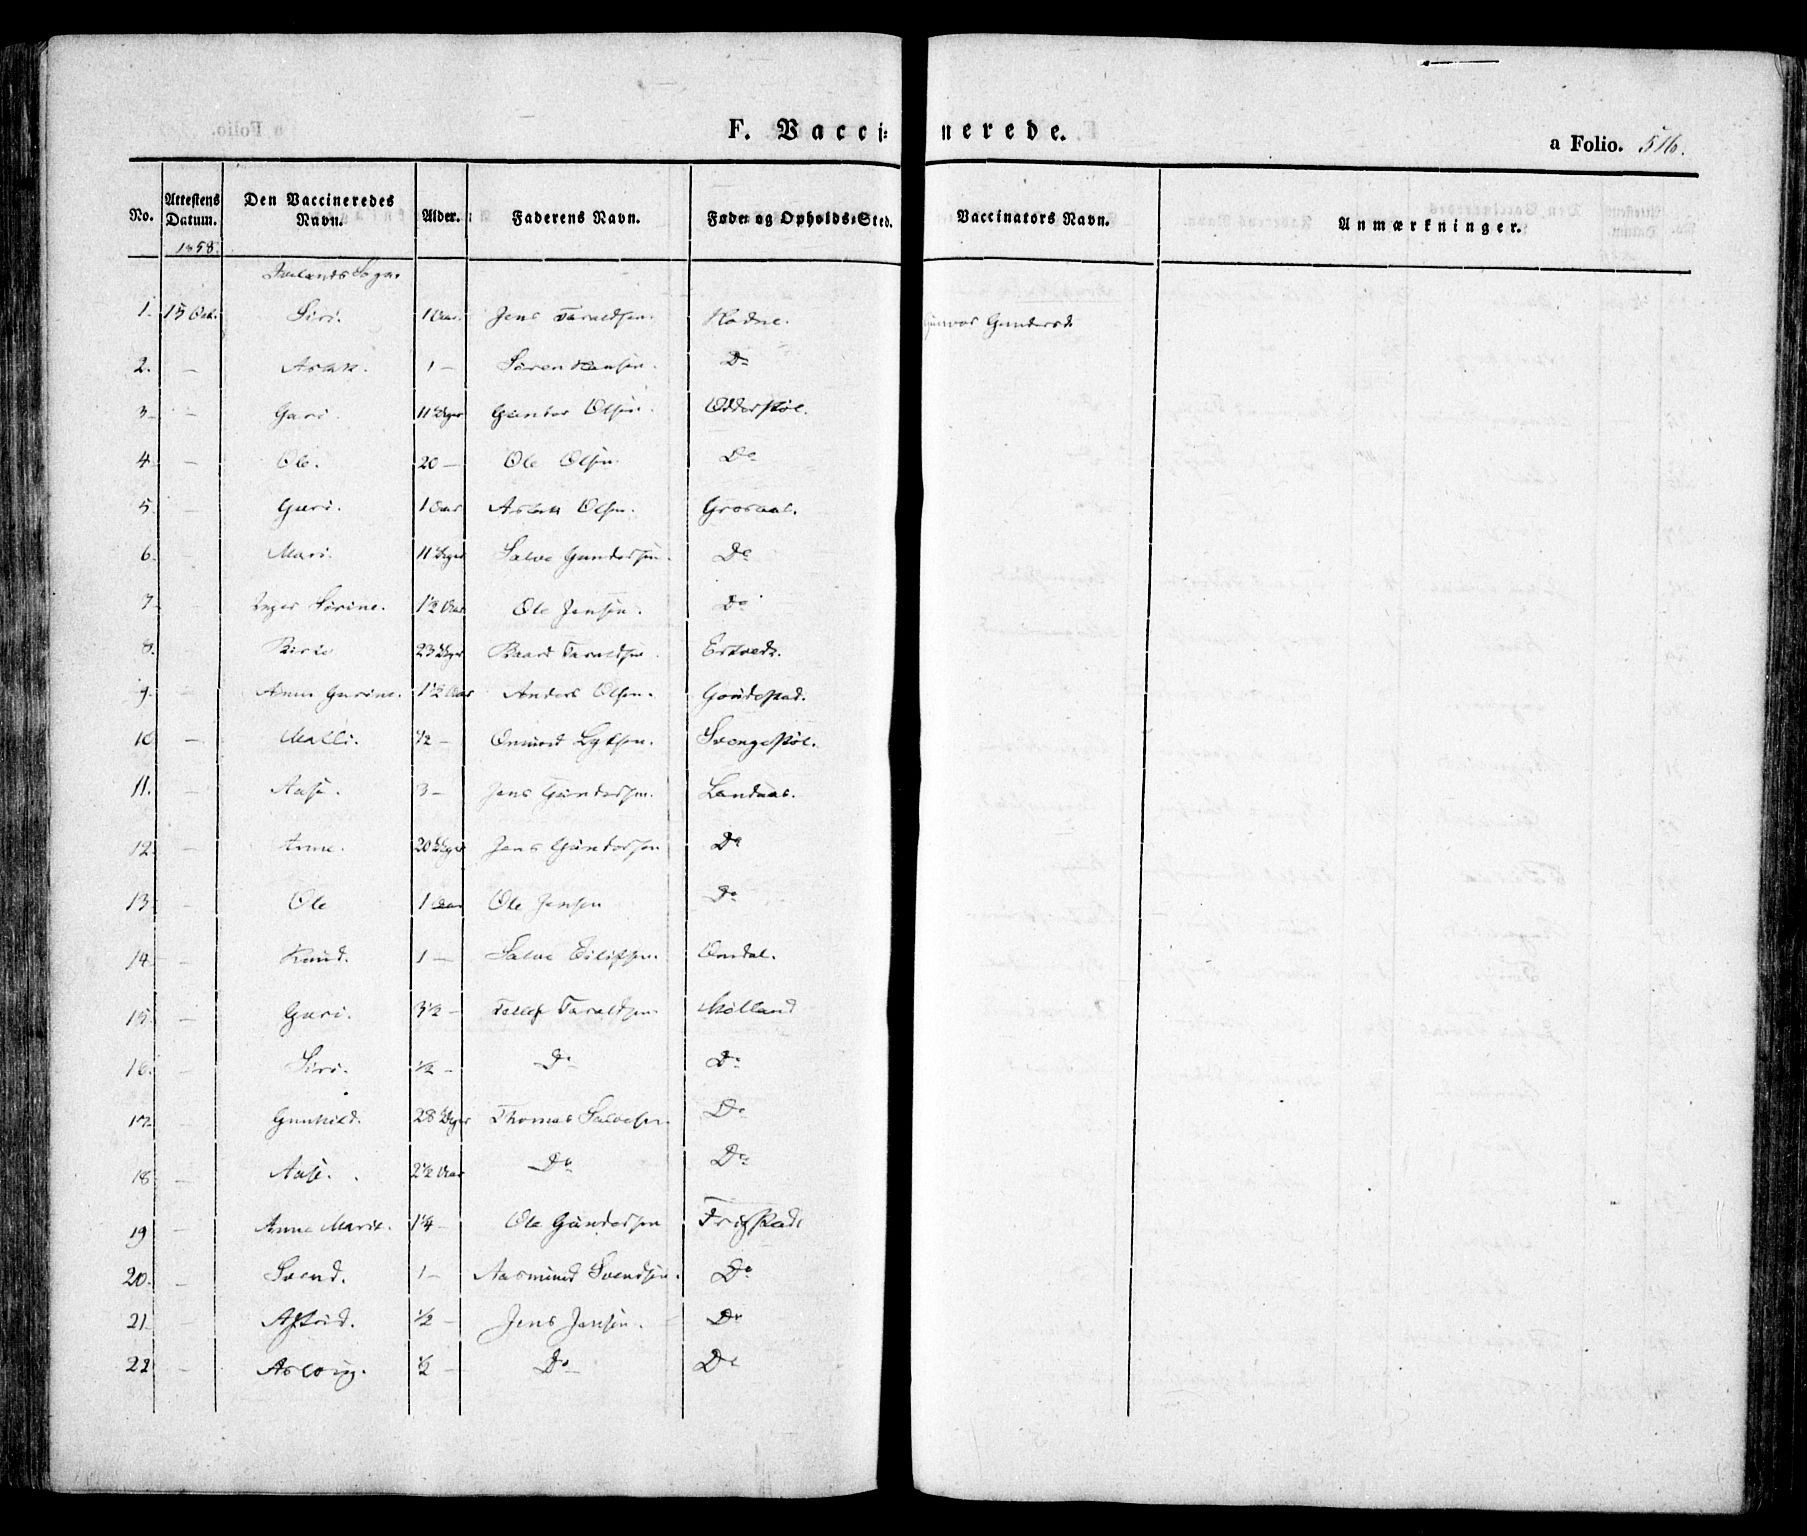 F. Vacci= nerede.
a Folio. 516.
No. Attestens Datum. Den Vaccineredes Navn. Alder. Faderens Navn. Føde= og Opholds=Sted. Vaccinators Navn. Anmærkninger.
1858.
Sogn.
1. 15 Oct. Siri. 1 Aar. Jens Taraldsen. Gunvor Gundersd
2. — Aslak. 1 — Søren Hansen. Do
3 — Guri. 11 Uger Gunder Olsen. Odderstøl.
4 — Ole. 20 — Ole Olsen Do
5. Guri. 1 Aar Aslak Olsen. Grosaas.
6. Mari. 11 Uger Salve Gundersen. Do
7 Inger Sørine. 1½ Aar Ole Jensen. Do
8. Birte 23 Uger Baard Taraldsen. Ertveds.
9. — Anne Gurine. 1½ Aar Anders Olsen. Gondestad.
10 — Malli. ½ — Osmund Svengestøl.
11. — Aase. 3 — Jens Gundersen. Landaas.
12. — Anne. 20 Uger Jens Gundersen Do
13. — Ole 1 Aar Ole Jensen Do
14 — Knud. 1 — Salve Eilifsen. Omdal.
15. — Guri. 3½ — Tellef Taraldsen. Mølland
16. — Siri. ½ — Do Do
17. — Gunhild. 28 Uger Thomas Salvesen. Do
18 — Aase. 2½ Aar Do Do
19 — Anne Marie. 1¼ — Ole Gundersen Frigstad
20. — Svend. 1 — Aasmund Svendsen. Do
21 — Astrid. ½ — Jens Jensen. Do
22 — Asloug. ½ — Do Do